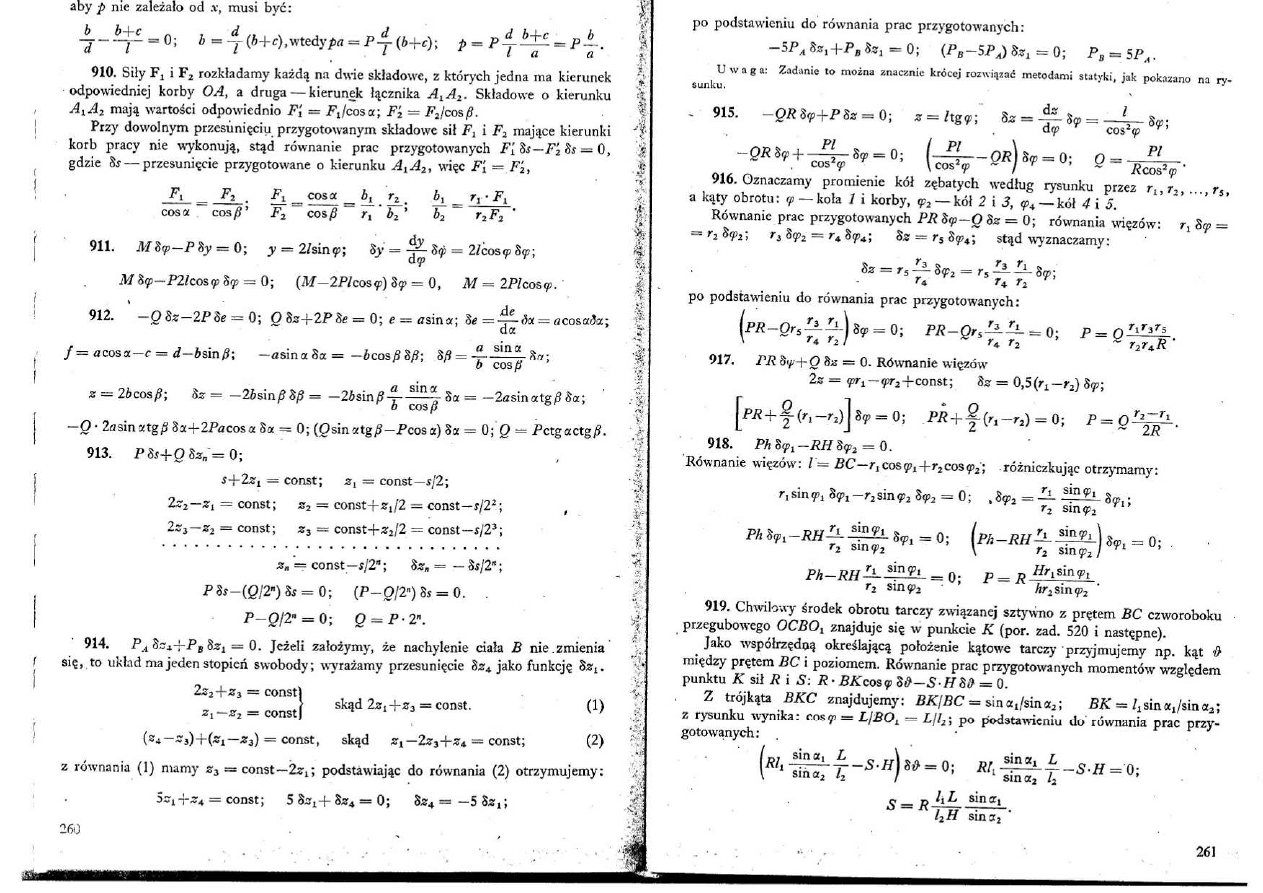 aby p nie zależało od x, musi być:
b/d − (b+c)/l = 0; b = d/l (b+c), wtedy pa = P d/l (b+c); p = P d/l (b+c)/a = P b/a.
910. Siły F₁ i F₂ rozkładamy każdą na dwie składowe, z których jedna ma kierunek
odpowiedniej korby OA, a druga — kierunek łącznika A₁A₂. Składowe o kierunku
A₁A₂ mają wartości odpowiednio F₁' = F₁/cos α; F₂' = F₂/cos β.
Przy dowolnym przesunięciu przygotowanym składowe sił F₁ i F₂ mające kierunki
korb pracy nie wykonują, stąd równanie prac przygotowanych F₁' δs−F₂' δs = 0,
gdzie δs — przesunięcie przygotowane o kierunku A₁A₂, więc F₁' = F₂',
F₁/cos α = F₂/cos β; F₁/F₂ = cos α/cos β = b₁/r₁ · r₂/b₂; b₁/b₂ = r₁·F₁/r₂F₂.
911. M δφ−P δy = 0; y = 2l sin φ; δy = dy/dφ δφ = 2l cos φ δφ;
M δφ−P2l cos φ δφ = 0; (M−2Pl cos φ) δφ = 0, M = 2Pl cos φ.
912. −Q δz−2P δe = 0; Q δz+2P δe = 0; e = a sin α; δe = de/dα δα = a cos α δα;
f = a cos α−c = d−b sin β; −a sin α δα = −b cos β δβ; δβ = a/b sin α/cos β δα;
z = 2b cos β; δz = −2b sin β δβ = −2b sin β a/b sin α/cos β δα = −2a sin α tg β δα;
−Q · 2a sin α tg β δα+2Pa cos α δα = 0; (Q sin α tg β−P cos α) δα = 0; Q = P ctg α ctg β.
913. P δs+Q δzₙ = 0;
s+2z₁ = const; z₁ = const−s/2;
2z₂−z₁ = const; z₂ = const+z₁/2 = const−s/2²;
2z₃−z₂ = const; z₃ = const+z₂/2 = const−s/2³;
. . . . . . . . . . . . . . . . . . . . . . . . . . . . . .
zₙ = const−s/2ⁿ; δzₙ = − δs/2ⁿ;
P δs−(Q/2ⁿ) δs = 0; (P−Q/2ⁿ) δs = 0.
P−Q/2ⁿ = 0; Q = P · 2ⁿ.
914. P_A δz₄+P_B δz₁ = 0. Jeżeli założymy, że nachylenie ciała B nie zmienia
się, to układ ma jeden stopień swobody; wyrażamy przesunięcie δz₄ jako funkcję δz₁.
2z₂+z₃ = const
z₁−z₂ = const } skąd 2z₁+z₃ = const. (1)
(z₄−z₃)+(z₁−z₃) = const, skąd z₁−2z₃+z₄ = const; (2)
z równania (1) mamy z₃ = const−2z₁; podstawiając do równania (2) otrzymujemy:
5z₁+z₄ = const; 5 δz₁+ δz₄ = 0; δz₄ = −5 δz₁;
260
po podstawieniu do równania prac przygotowanych:
−5P_A δz₁+P_B δz₁ = 0; (P_B−5P_A) δz₁ = 0; P_B = 5P_A.
Uwaga: Zadanie to można znacznie krócej rozwiązać metodami statyki, jak pokazano na ry-
sunku.
915. −QR δφ+P δz = 0; z = l tg φ; δz = dz/dφ δφ = l/cos²φ δφ;
−QR δφ + Pl/cos²φ δφ = 0; (Pl/cos²φ −QR) δφ = 0; Q = Pl/R cos²φ.
916. Oznaczamy promienie kół zębatych według rysunku przez r₁, r₂, ..., r₅,
a kąty obrotu: φ — koła 1 i korby, φ₂ — kół 2 i 3, φ₄ — kół 4 i 5.
Równanie prac przygotowanych PR δφ−Q δz = 0; równania więzów: r₁ δφ =
= r₂ δφ₂; r₃ δφ₂ = r₄ δφ₄; δz = r₅ δφ₄; stąd wyznaczamy:
δz = r₅ r₃/r₄ δφ₂ = r₅ r₃/r₄ r₁/r₂ δφ;
po podstawieniu do równania prac przygotowanych:
(PR−Qr₅ r₃/r₄ r₁/r₂) δφ = 0; PR−Qr₅ r₃/r₄ r₁/r₂ = 0; P = Q r₁r₃r₅/r₂r₄R.
917. PR δφ+Q δz = 0. Równanie więzów
2z = φr₁−φr₂+const; δz = 0,5(r₁−r₂) δφ;
[PR+ Q/2 (r₁−r₂)] δφ = 0; PR+ Q/2 (r₁−r₂) = 0; P = Q (r₂−r₁)/2R.
918. Ph δφ₁−RH δφ₂ = 0.
Równanie więzów: l = BC−r₁ cos φ₁+r₂ cos φ₂; różniczkując otrzymamy:
r₁ sin φ₁ δφ₁−r₂ sin φ₂ δφ₂ = 0; δφ₂ = r₁/r₂ sin φ₁/sin φ₂ δφ₁;
Ph δφ₁−RH r₁/r₂ sin φ₁/sin φ₂ δφ₁ = 0; (Ph−RH r₁/r₂ sin φ₁/sin φ₂) δφ₁ = 0;
Ph−RH r₁/r₂ sin φ₁/sin φ₂ = 0; P = R Hr₁ sin φ₁/hr₂ sin φ₂.
919. Chwilowy środek obrotu tarczy związanej sztywno z prętem BC czworoboku
przegubowego OCBO₁ znajduje się w punkcie K (por. zad. 520 i następne).
Jako współrzędną określającą położenie kątowe tarczy przyjmujemy np. kąt ϑ
między prętem BC i poziomem. Równanie prac przygotowanych momentów względem
punktu K sił R i S: R · BK cos φ δϑ−S·H δϑ = 0.
Z trójkąta BKC znajdujemy: BK/BC = sin α₁/sin α₂; BK = l₁ sin α₁/sin α₂;
z rysunku wynika: cos φ = L/BO₁ = L/l₂; po podstawieniu do równania prac przy-
gotowanych:
(Rl₁ sin α₁/sin α₂ L/l₂ −S·H) δϑ = 0; Rl₁ sin α₁/sin α₂ L/l₂ −S·H = 0;
S = R l₁L/l₂H sin α₁/sin α₂.
261